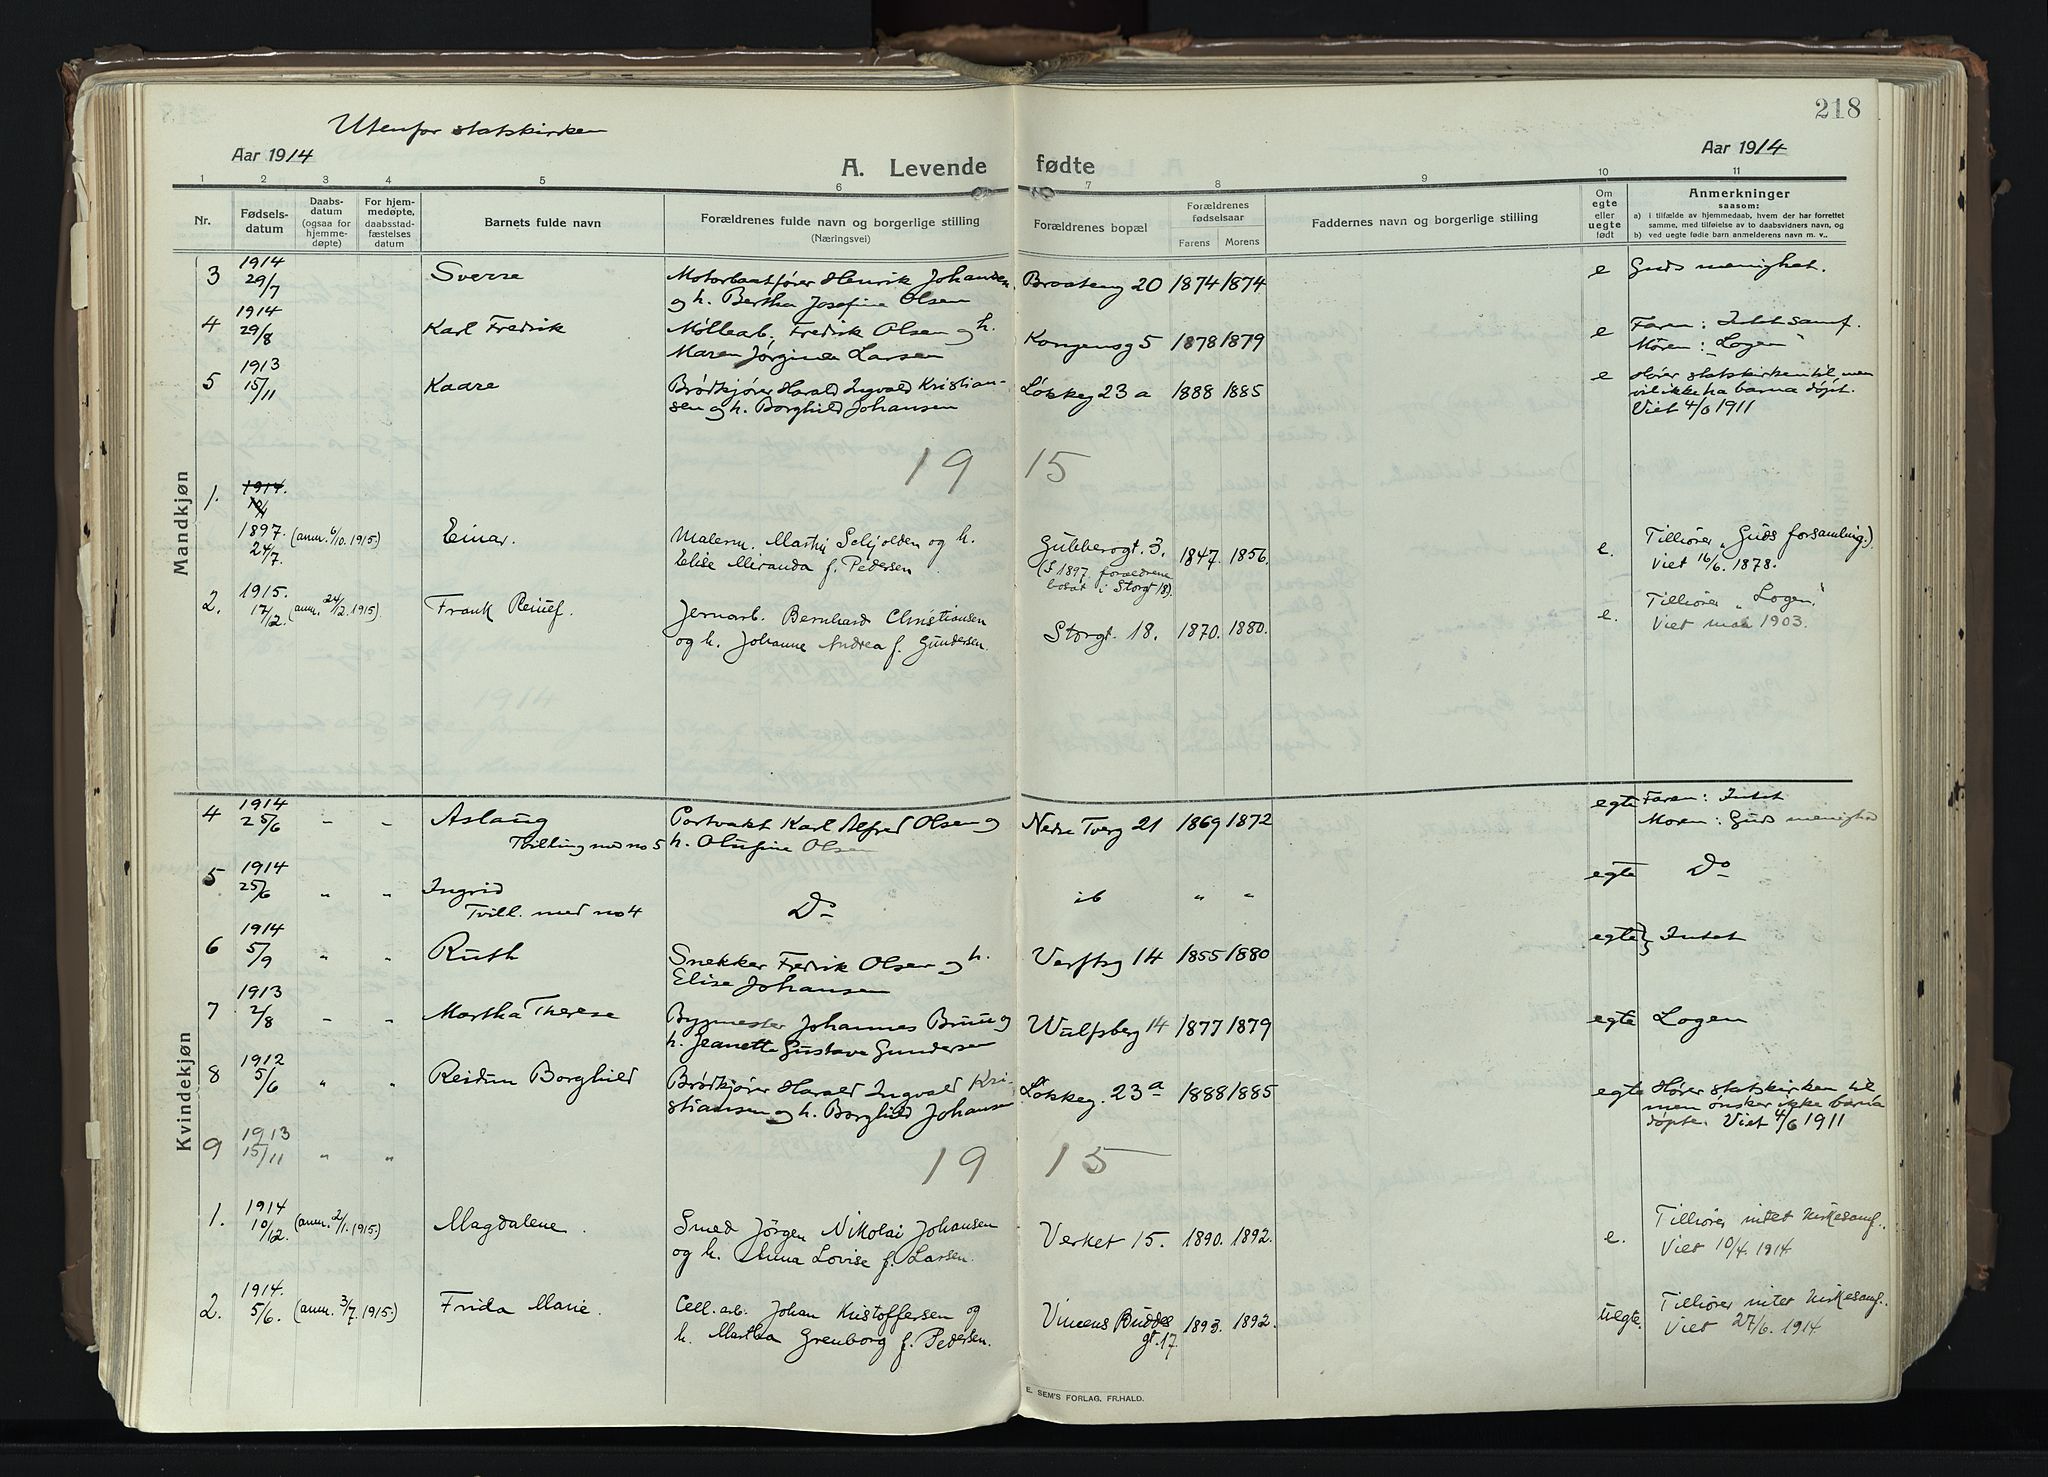 218
Utenfor statskirken
Aar 1914
A. Levende fødte
Aar 1914
1 2 3 4 5 6 7 8 9 10 11
Nr.
Fødsels-
datum
Daabs-
datum
(ogsaa for
hjemme-
døpte)
For hjem-
medøpte,
daabsstad-
fæstelses
datum
Barnets fulde navn
Forældrenes fulde navn og borgerlige stilling
(Næringsvei)
Forældrenes bopæl
Forældrenes
fødselsaar
Farens Morens
Faddernes navn og borgerlige stilling
Om
egte
eller
uegte
født
Anmerkninger
saasom:
a) i tilfælde av hjemmedaab, hvem der har forrettet
samme, med tilføielse av to daabsvidners navn, og
b) ved uegte fødte barn anmelderens navn m. v..
Mandkjøn
3 1914 29/7 Sverre Motorbaatfører Henrik Johansen Braateng 20 1874 1874 e Guds menighet.
og h. Bertha Josefine Olsen
4 1914 29/8 Karl Fredrik Møllearb. Fredrik Olsen og h. Kongensg 5 1878 1879 e Faren: Intet samf.
Maren Jørgine Larsen Moren: "Logen"
5 1913 15/11 Kaare Brødkjører Harald Ingvald Kristian- Løkkeg 23 a 1888 1885 e Hører statskirken til men
sen og h. Borghild Johansen vil ikke ha barna døpt.
Viet 4/6 1911
19 15
1. 1914.
1897. 24/7. (anm. 6/10. 1915.) Einar. Malerm. Martin Schjolden og h. Gubberogt. 3. 1847. 1856. e. Tilhører "Guds forsamling.)
Elise Miranda f. Pedersen (I 1897 forældrene Viet 16/6. 1878.
bosat i Storgt 18).
2. 1915. 17/2. (anm. 24/2. 1915) Frank Reinef. Jernarb. Bernhard Christiansen Storgt. 18. 1870. 1880. e. Tilhører "Logen."
og h. Johanne Andrea f. Gundersen. Viet mai 1903.
Kvindekjøn
4 1914 25/6 - - Aslaug Portvakt Karl Alfred Olsen og Nedre Tverg 21 1869 1872 egte Faren: Intet
Tvilling med no 5 h. Olufine Olsen Moren: Guds menighed
5 1914 25/6 " " Ingrid Do ib " " egte Do
Tvill. med no 4
6 1914 5/9 " " Ruth Snekker Fredrik Olsen og h. Verftsg 14 1855 1880 egte Intet
Elise Johansen
7 1913 2/8 - " Martha Therese Bygmester Johannes Bruu og Wulfsberg 14 1877 1879 egte Logen
h. Jeanette Gustava Gundersen
8 1912 5/6 " " Reidun Borghild Brødkjører Harald Ingvald Kri- Løkkeg. 23 a 1888 1885 egte Hører statskirken til
stiansen og h. Borghild Johansen men ønsker ikke barna
døpte. Viet 4/6 1911
9 1913 15/11 " "
19 15
1. 1914 10/12. (anm. 2/1. 1915.) Magdalene. Smed Jørgen Nikolai Johansen Verket 15. 1890. 1892. e. Tilhører intet kirkesamf..
og h. Anna Lovise f. Larsen. Viet 10/4. 1914
2. 1914. 5/6. (anm. 3/7. 1915.) Frida Marie. Cell. arb. Johan Kristoffersen og Vincens Buddes 1893. 1892. uegte. Tilhører intet kirkesamf..
h. Martha Grenborg f. Pedersen. gt. 17 Viet 27/6. 1914
E. SEM'S FORLAG, FR.HALD.